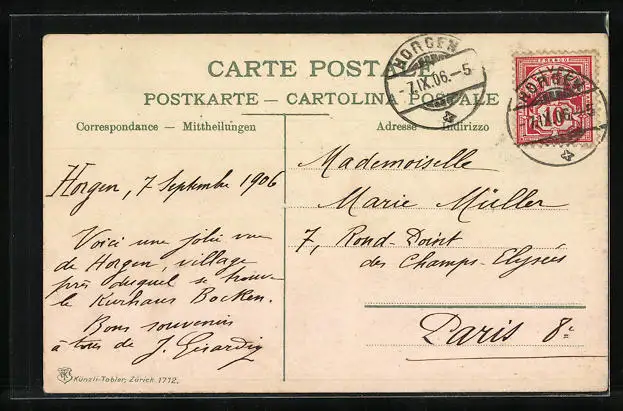 CARTE POSTALE
POSTKARTE — CARTOLINA POSTALE
Correspondance — Mittheilungen
Adresse Indirizzo
HORGEN
-7.IX.06.-5
FRANCO
HORGEN
Horgen, 7 Septembre 1906
Voici une jolie vue
de Horgen, village
près duquel se trouve
le Kurhaus Bocken.
Bons souvenirs
à tous de J.
Mademoiselle
Marie Müller
7, Rond-Point
des Champs-Elysées
Paris 8e
Künzli-Tobler, Zürich 1712.